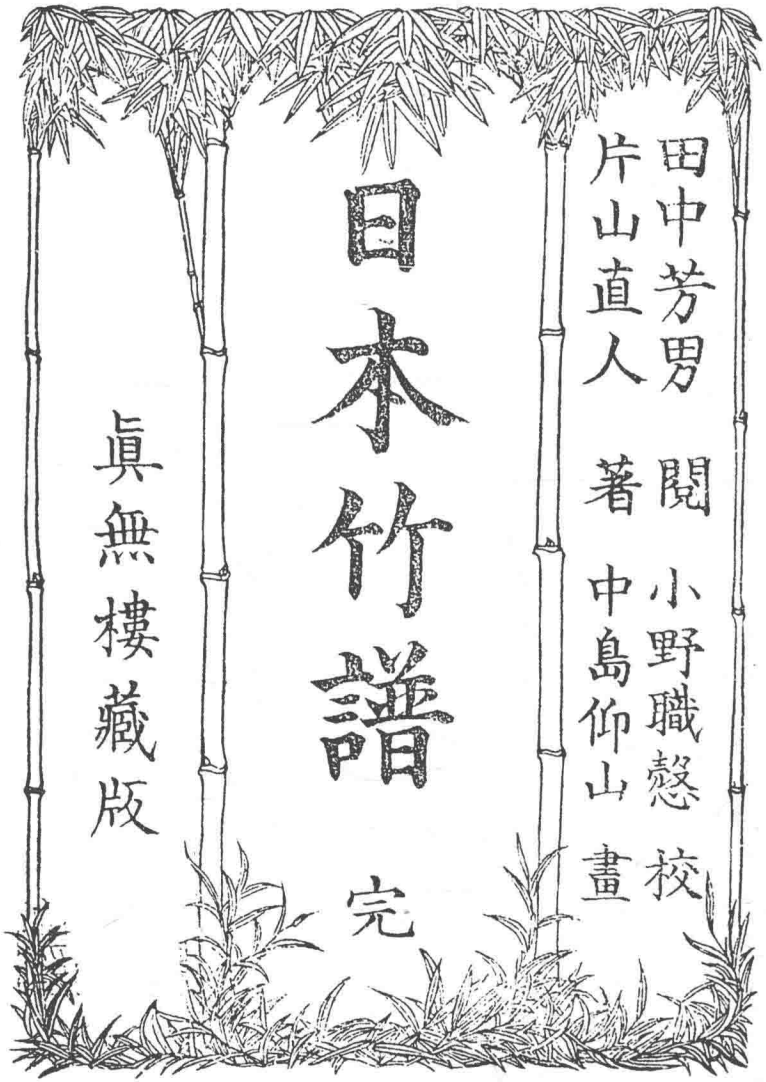 田中芳男 閱 小野職慤 校
片山直人 著 中島仰山 畫
日本竹譜 完
眞無樓藏版